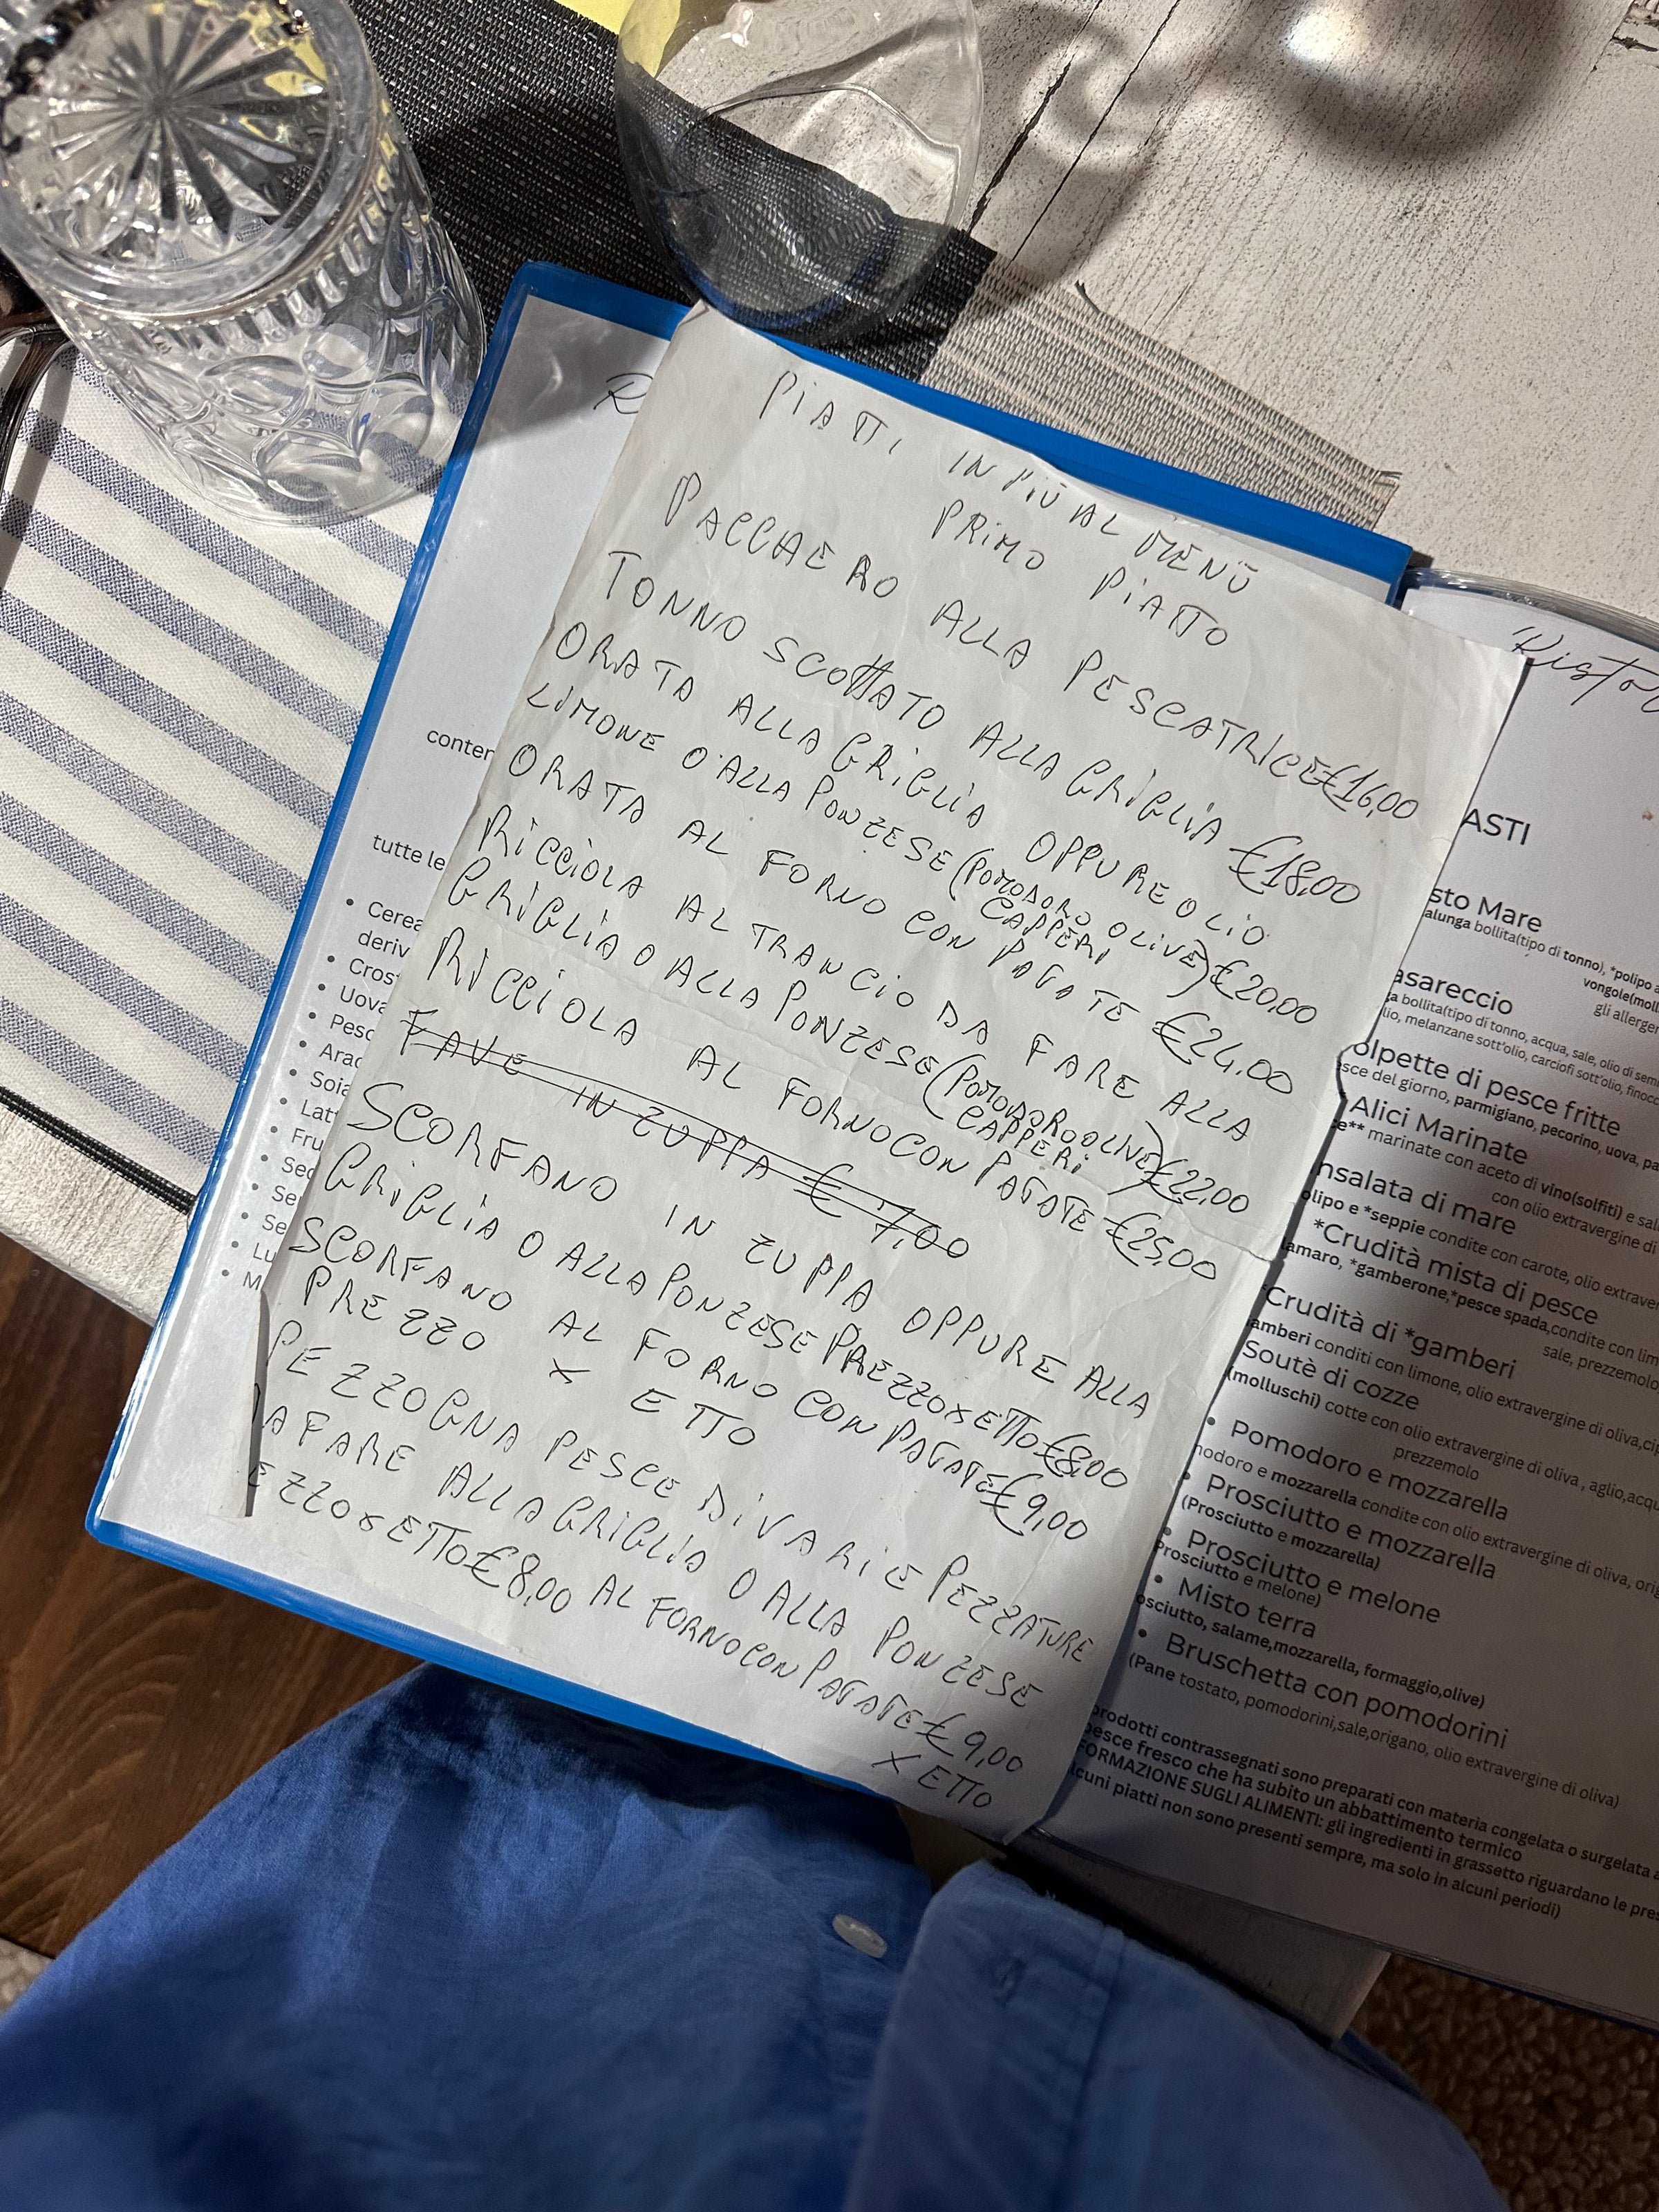 PIATTI IN PIÙ AL MENÙ
PRIMO PIATTO
PACCHERO ALLA PESCATRICE €16,00
TONNO SCOTTATO ALLA GRIGLIA €18,00
ORATA ALLA GRIGLIA OPPURE OLIO
LIMONE O ALLA PONZESE (POMODORO OLIVE
CAPPERI) €20,00
ORATA AL FORNO CON PATATE €24,00
RICCIOLA AL TRANCIO DA FARE ALLA
GRIGLIA O ALLA PONZESE (POMODORO OLIVE
CAPPERI) €22,00
RICCIOLA AL FORNO CON PATATE €25,00
FAVE IN ZUPPA € 7,00
SCORFANO IN ZUPPA OPPURE ALLA
GRIGLIA O ALLA PONZESE PREZZO x ETTO €8,00
SCORFANO AL FORNO CON PATATE €9,00
PREZZO x ETTO
PEZZOGNA PESCE DI VARIE PEZZATURE
A FARE ALLA GRIGLIA O ALLA PONZESE
EZZO x ETTO €8,00 AL FORNO CON PATATE €9,00
x ETTO
R
conter
tutte le
• Cerea
deriv
• Cros
• Uova
• Pesc
• Arac
• Soia
• Latt
• Fru
• Sed
• Se
• Se
• Lu
• M
Risto
ASTI
sto Mare
alunga bollita(tipo di tonno), *polipo a
vongole(moll
gli allerger
asareccio
a bollita(tipo di tonno, acqua, sale, olio di sem
lio, melanzane sott'olio, carciofi sott'olio, finocc
olpette di pesce fritte
sce del giorno, parmigiano, pecorino, uova, pa
Alici Marinate
e** marinate con aceto di vino(solfiti) e sal
con olio extravergine di
nsalata di mare
olipo e *seppie condite con carote, olio extraver
*Crudità mista di pesce
lamaro, *gamberone,*pesce spada,condite con lim
sale, prezzemolo,
Crudità di *gamberi
amberi conditi con limone, olio extravergine di oliva,cip
Soutè di cozze
(molluschi) cotte con olio extravergine di oliva , aglio,acqu
prezzemolo
• Pomodoro e mozzarella
modoro e mozzarella condite con olio extravergine di oliva, orig
• Prosciutto e mozzarella
(Prosciutto e mozzarella)
• Prosciutto e melone
Prosciutto e melone)
• Misto terra
osciutto, salame,mozzarella, formaggio,olive)
• Bruschetta con pomodorini
(Pane tostato, pomodorini,sale,origano, olio extravergine di oliva)
prodotti contrassegnati sono preparati con materia congelata o surgelata a
pesce fresco che ha subito un abbattimento termico
FORMAZIONE SUGLI ALIMENTI: gli ingredienti in grassetto riguardano le pres
lcuni piatti non sono presenti sempre, ma solo in alcuni periodi)